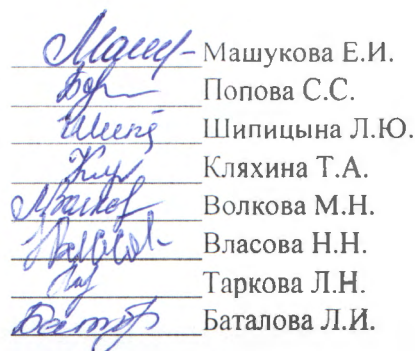 Машукова Е.И.
Попова С.С.
Шипицына Л.Ю.
Кляхина Т.А.
Волкова М.Н.
Власова Н.Н.
Таркова Л.Н.
Баталова Л.И.